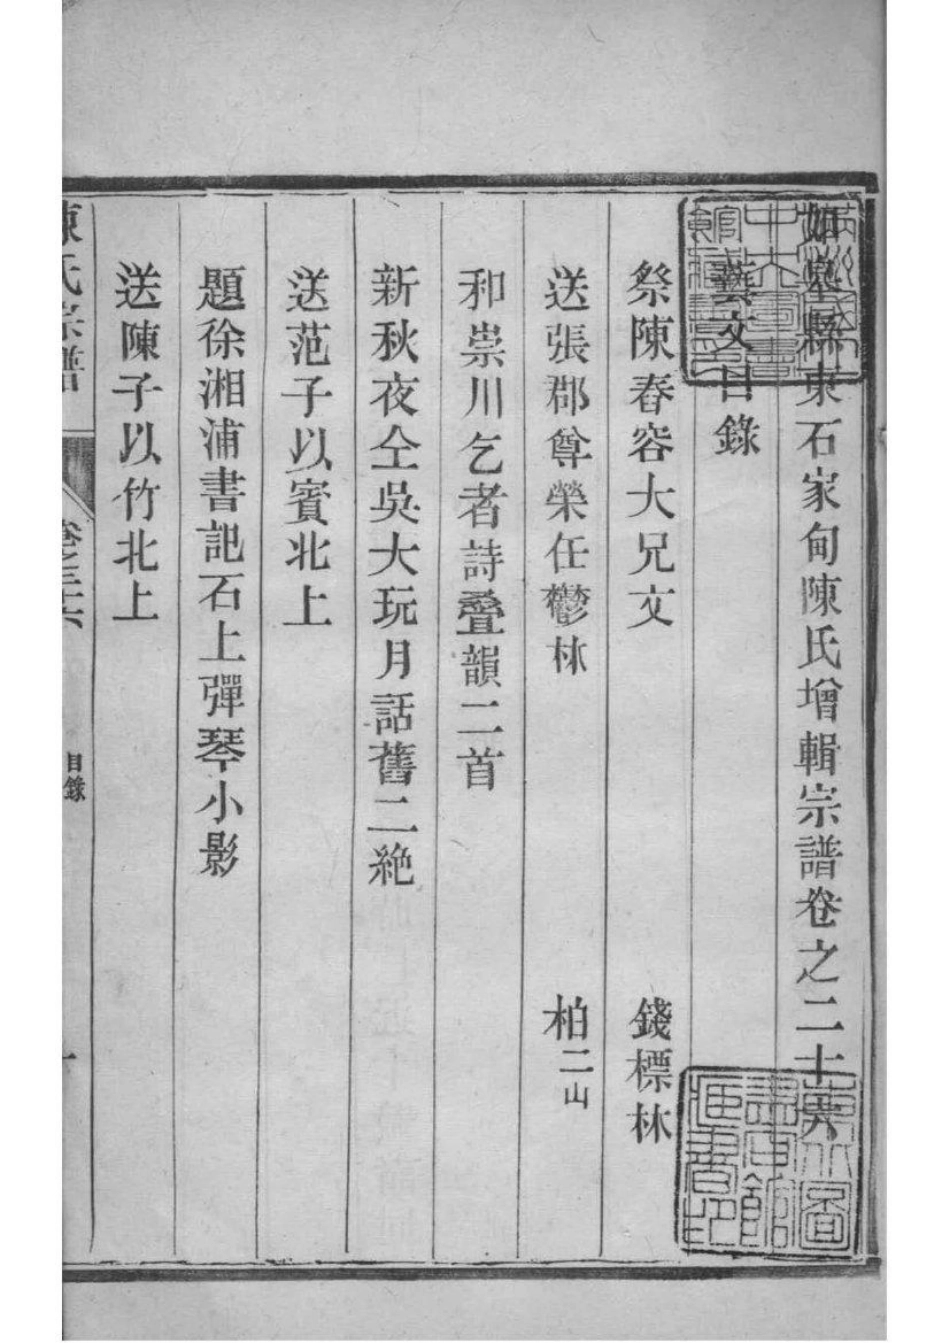 如皋縣東石家甸陳氏增輯宗譜卷之二十六
藝文目錄
祭陳春容大兄文 錢標林
送張郡尊榮任鬱林 柏二山
和崇川乞者詩疊韻二首
新秋夜仝吳大玩月話舊二絶
送范子以賓北上
題徐湘浦書記石上彈琴小影
送陳子以竹北上
陳氏宗譜 卷之二十六 目錄 一